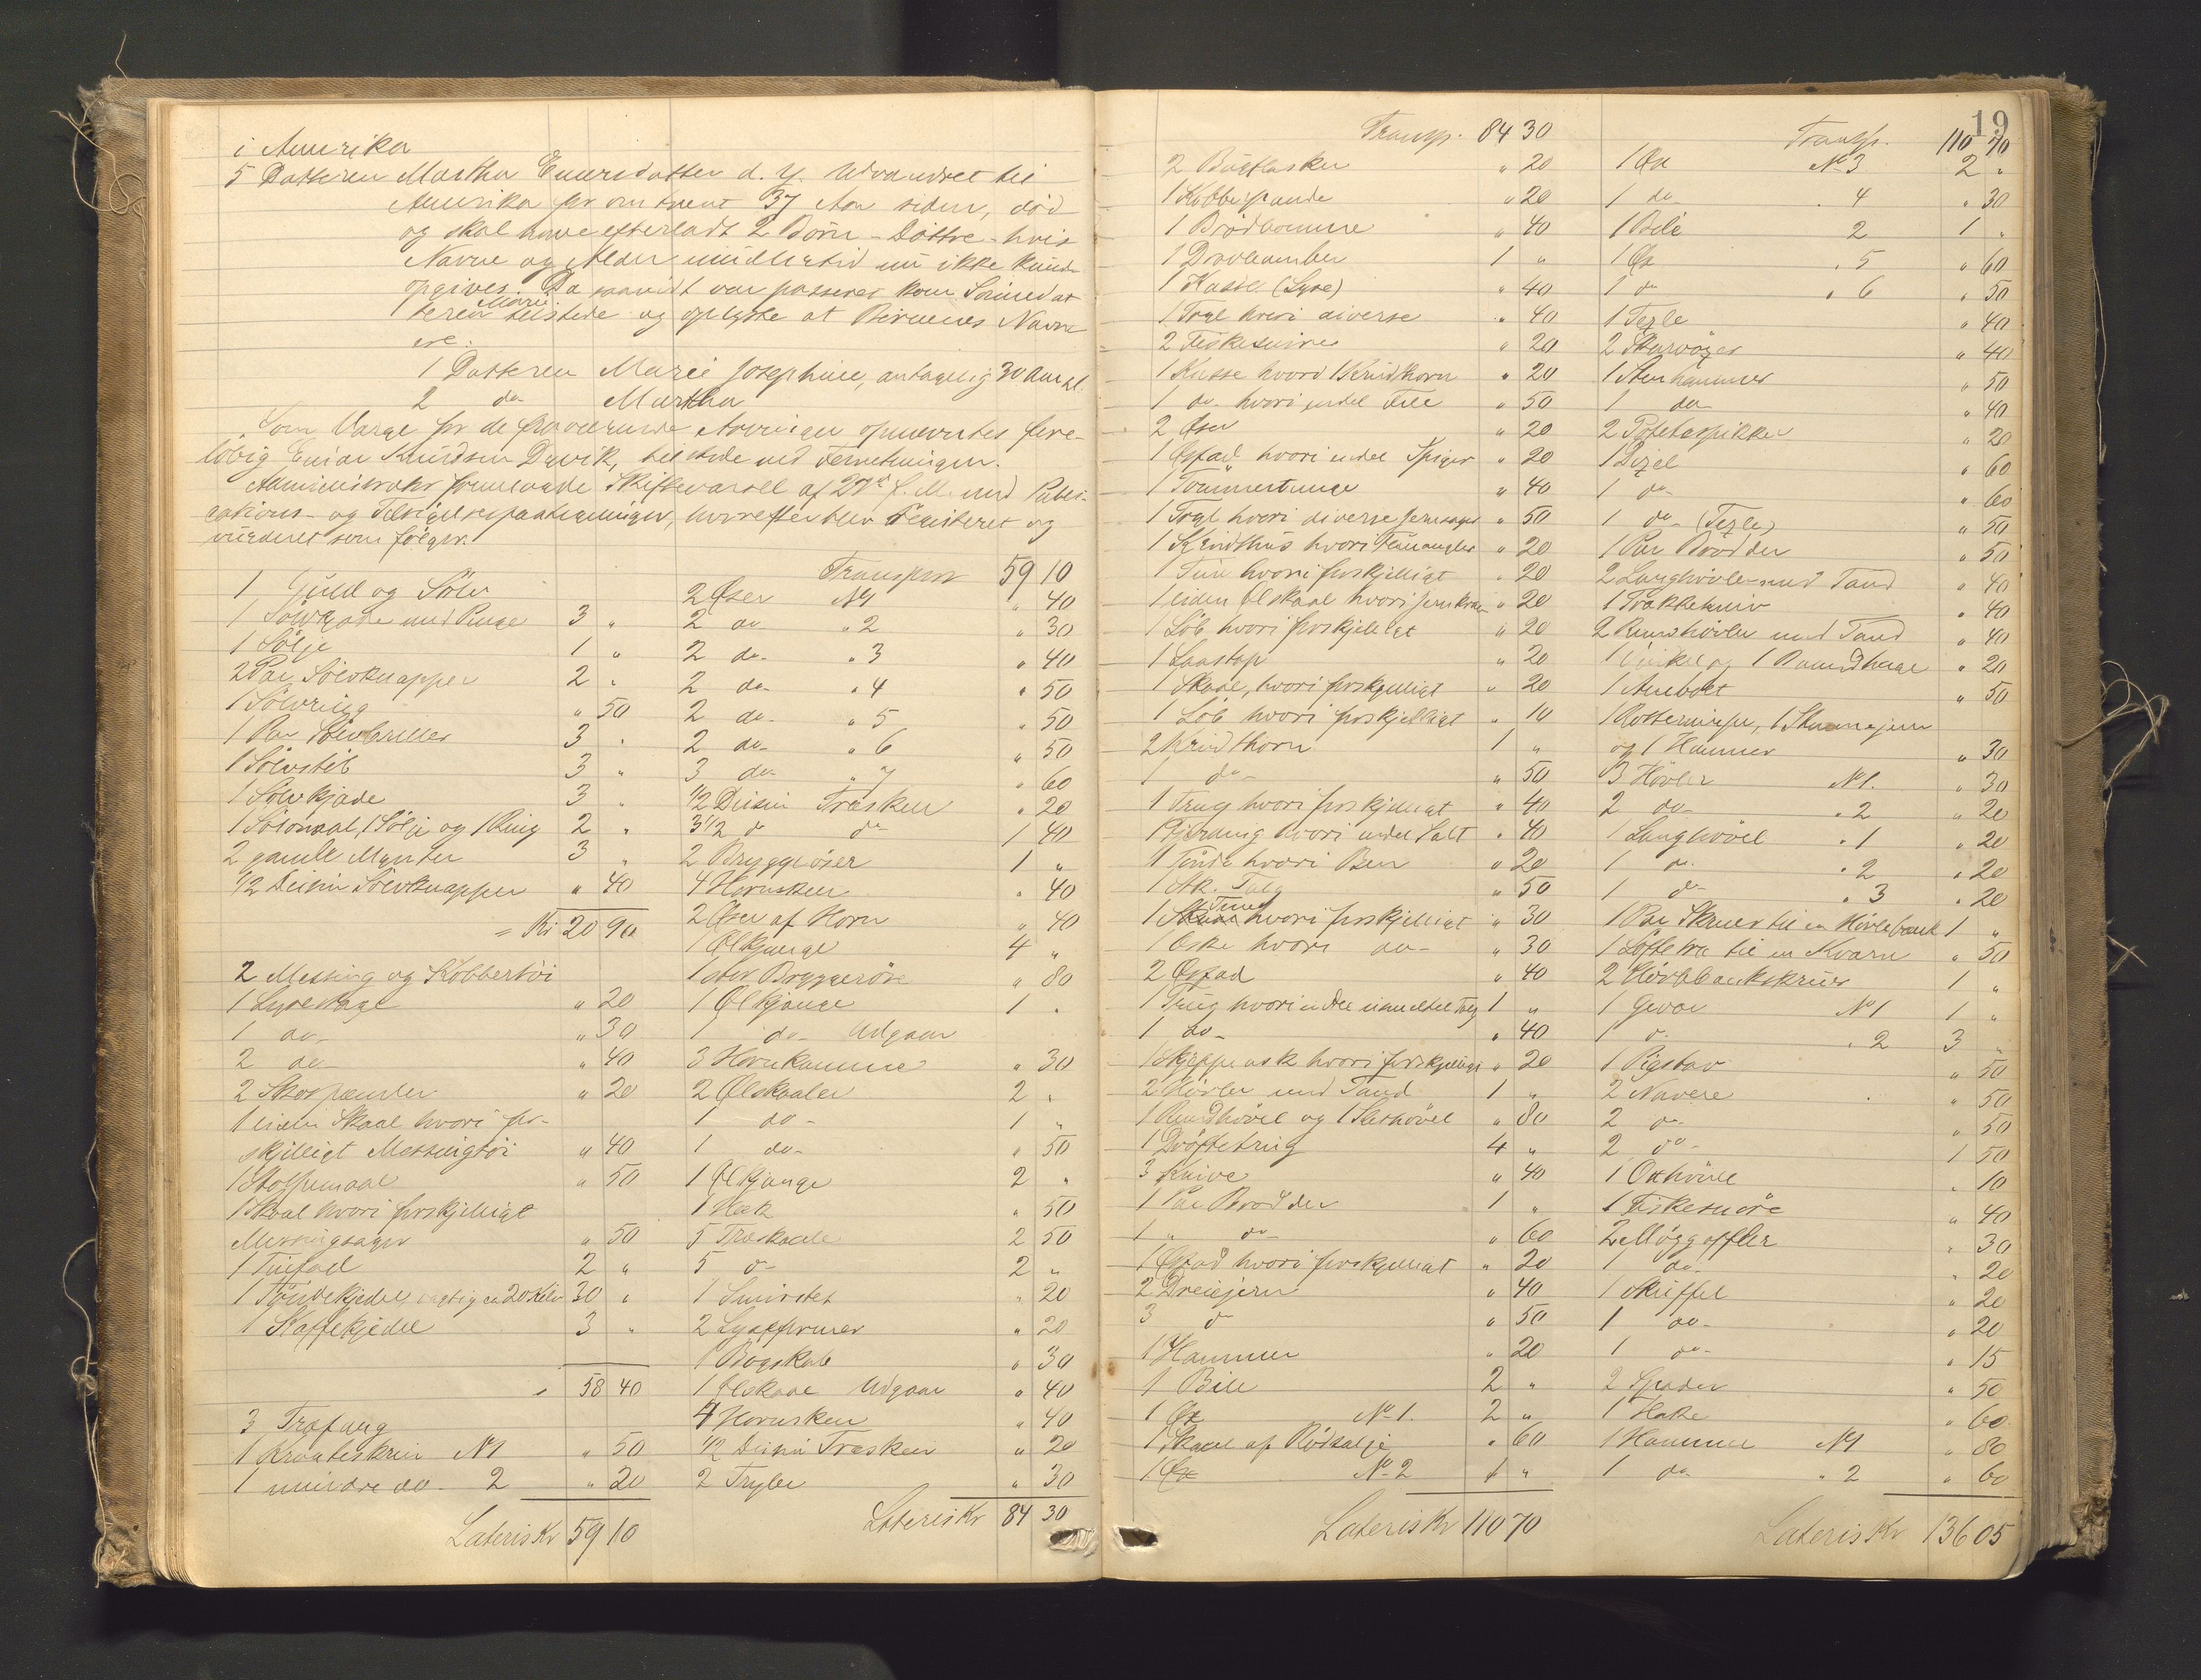 i Amerika
5 Datteren Martha Einarsdatter d. y. udvandret til
Amerika for omtrent 37 Aar siden, død
og skal have efterladt 2 Børn - Døttre - hvis
Navne og Alder imidlertid nu ikke kunde
opgives. Da saavidt var passeret kom
Marie
tilstede og oplyste at Børnenes Navne
ere:
1 Datteren Marie Josephine, antagelig 30 Aar gl.
2 do Martha
Som Værge for de fraværende Arvinger opnævntes fore-
løbig Einar Knudsen Dyvik, tilstede ved Forretningen.
Administrator fremlagde Skiftevarsel af 27de f. M. med Publi-
cations- og Tilsigelsespaategninger, hvorefter blev registeret og
vurderet som følger:
1 Guld og Sølv
1 Sølvgade med Penge 3 "
1 Sølje 1 "
2 Par Sølvknapper 2 "
1 Sølvring " 50
1 Par Sølvbriller 3 "
1 Sølvstøb 3 "
1 Sølvkjæde 3 "
1 Sølvnaal, 1 Sølje og 1 Ring 2 "
2 gamle Mynter 3 "
1/2 Dusin Sølvknapper " 40
= Kr 20 90
2 Messing og Kobbertøi
1 Lysestage " 20
1 do " 30
2 do " 40
2 Skospænder " 20
1 liden Skaal hvori for-
skjelligt Messingtøi " 40
1 Stolpemaal " 50
1 Skaal hvori forskjelligt
Messingsager " 50
1 Tinfad 2 "
1 Tøndekjedel, vægtig ca 20 Kilo 30 "
1 Kaffekjedel 3 "
" 58 40
3 Træfang
1 Kravteskrin No 1 " 50
1 mindre do - 2 " 20
Lateris Kr 59 10
Transport 59 10
2 Øser No 1 " 40
2 do " 2 " 30
2 do " 3 " 40
2 do " 4 " 50
2 do " 5 " 50
2 do " 6 " 50
3 do " 7 " 60
1/2 Dusin Træskeer " 20
3 1/2 do do 1 40
2 Bryggeøser 1 "
4 Hornskeer " 40
2 Øser af Horn " 40
1 Ølkjænge 4 "
1 stor Bryggerøse " 80
1 Ølkjænge 1 "
1 do - Udgaar
3 Hornkamme " 30
2 Ølskaaler 2 "
1 do - 1 "
1 do - " 50
1 Ølkjænge 2 "
1 Hæk " 50
5 Træskaale 2 50
5 do 2 "
1 " 20
2 Lyseformer " 20
1 Bogskab " 30
1 Ølskaal Udgaar " 40
4 Hornskeer " 40
1/2 Dusin Træskeer " 20
2 Tryler " 30
Lateris Kr 84 30
Transp. 84 30
2 Bugflasker " 20
1 Kobberpande " 20
1 Brødkomme " 40
1 1 "
1 Kasse (Lyse) " 40
1 Traal hvori diverse " 40
2 Fiskesnører " 20
1 Kasse hvori 1 Krudthorn " 20
1 do hvori endel File " 50
2 Øser " 20
1 Øsfad hvori endel Spiger " 20
1 Tommestange " 40
1 Traal hvori diverse Jernsager " 50
1 Krudthus hvori Fluangler " 20
1 Tine hvori forskjelligt " 20
1 liden Ølskaal hvori " 20
1 Løb hvori forskjelligt " 20
1 Laastap " 20
1 Skaal, hvori forskjelligt " 20
1 Løb hvori forskjelligt " 10
2 Krudthorn 1 "
1 do " 50
1 Trug hvori forskjelligt " 40
1 Fjerding hvori endel Salt " 40
1 Tønde hvori Ben " 20
1 Stk. Talg " 50
Tine
1 hvori forskjelligt " 30
1 Eske hvori do - " 30
2 Øsfad " 40
1 Trug hvori endel usmeltet Talg 1 "
1 do " 40
1 Skjeppeask hvori forskjelligt " 20
2 Høvler med Tand 1 "
1 Rundhøvel og 1 Sletthøvel " 80
1 Drøftetrug 4 "
3 Knive " 40
1 Par Brodder 1 "
1 " do " 60
1 Øsfad hvori forskjelligt " 20
2 Dreiejern " 40
3 do " 50
1 Hammer " 20
1 Bile 2 "
1 Øx No 1. 2 "
1 Skaal af Rødselje " 60
1 Øx No 2 1 "
Lateris Kr 110 70
19
Transp. 110 70
1 Øx No 3 2 "
1 do " 4 " 30
1 Bile 2 1 "
1 Øx " 5 " 60
1 do " 6 " 50
1 Texle " 40
2 Skarøxer " 40
1 Stenhammer " 50
1 do " 40
2 Potetespikker " 20
1 Dixel " 60
1 do " 60
1 do (Texle) " 50
1 Par Brodder " 50
2 Langhøvler med Tand " 40
1 Trækkekniv " 40
2 med Tand " 40
1 Vinkel og 1 " 20
1 Ambolt " 50
1 , 1 Stemmejern
og 1 Hammer " 30
3 Høvler No 1. " 30
2 do " 2 " 20
1 Langhøvel " 1 " 20
1 do " 2 " 20
1 do " 3 " 20
1 Par Skruer til en Høvlebænk 1 "
1 Løftetræ til en Kværn " 50
2 Høvlbænkskruer 1 "
1 Gevær No 1 1 "
1 do " 2 3 "
1 Pigstav " 50
2 Navere " 50
2 do " 50
2 do 1 50
1 Oxhøvel " 10
1 Fiskesnøre " 40
2 Møggafler " 30
1 do - " 20
1 Skuffel " 20
1 do - " 20
1 do - " 15
2 Spader " 50
1 Hake " 60
1 Hammer No 1 " 80
1 do " 2 " 60
Lateris Kr 136 05